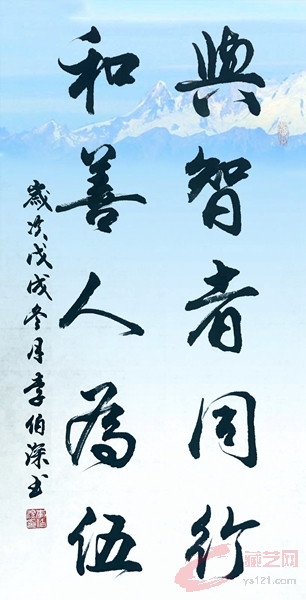 與智者同行
和善人為伍
歲次戊戌冬月李伯深書
藏艺网
ys121.com